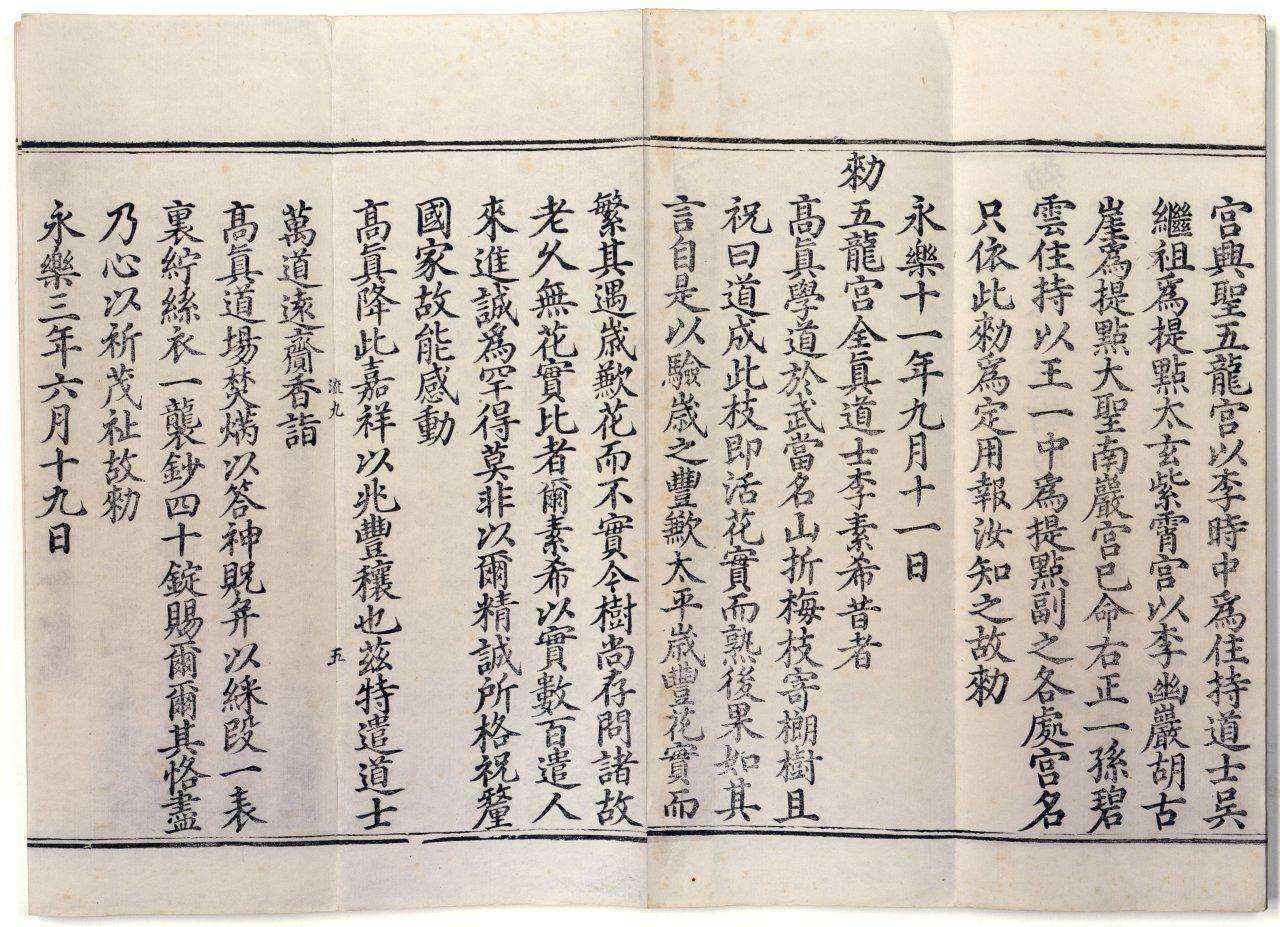 宮興聖五龍宮以李時中爲住持道士吳
繼祖爲提點太玄紫霄宮以李幽巖胡古
崖爲提點大聖南巖宮已命右正一孫碧
雲住持以王一中爲提點副之各處宮名
只依此勑爲定用報汝知之故勑
永樂十一年九月十一日
勑五龍宮全眞道士李素希昔者
高眞學道於武當名山折梅枝寄榔樹且
祝曰道成此枝即活花實而熟後果如其
言自是以驗歲之豐歉太平歲豐花實而
繁其遇歲歉花而不實今樹尚存問諸故
老久無花實比者爾素希以實數百遣人
來進誠爲罕得莫非以爾精誠所格祝釐
國家故能感動
高眞降此嘉祥以兆豐穰也兹特遣道士
流九
五
萬道遠齎香詣
高眞道場焚爇以答神貺并以綵段一表
裏紵絲衣一襲鈔四十錠賜爾爾其恪盡
乃心以祈茂祉故勑
永樂三年六月十九日